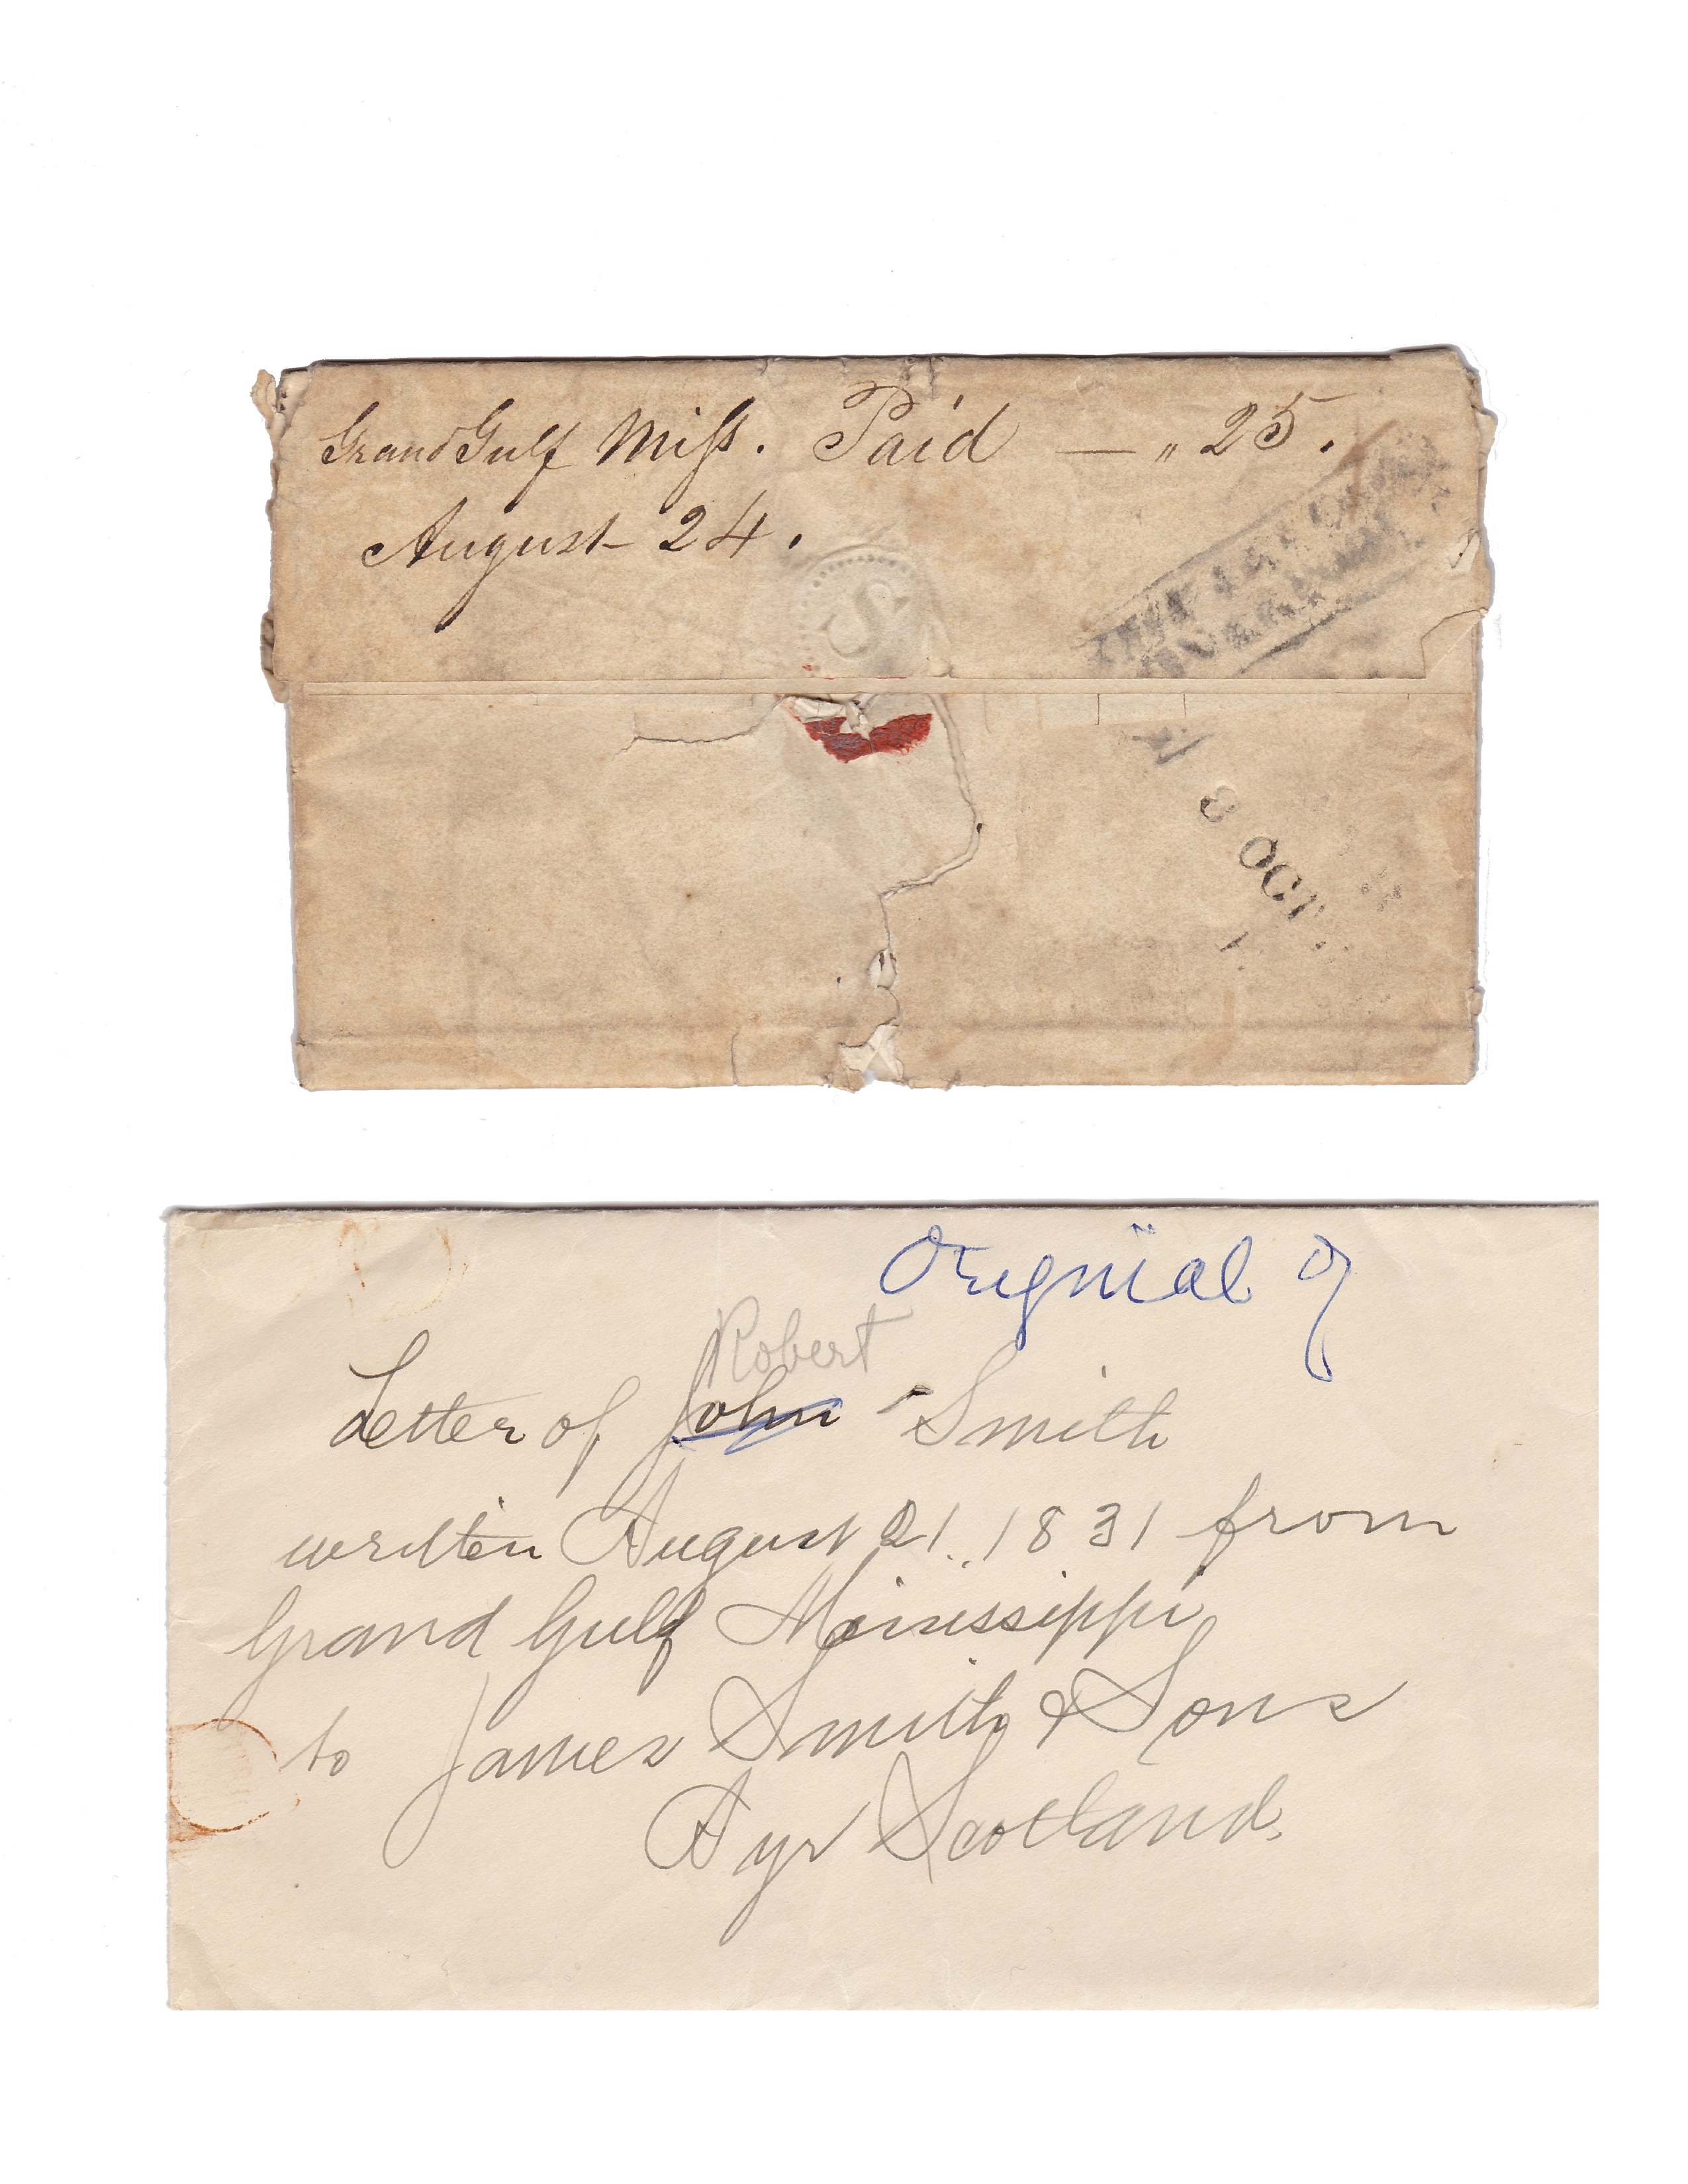 Grand Gulf Miſs. Paid — „ 25.
August 24.
S
8 OCT
Original of
Robert
Letter of John Smith
written August 21..1831 from
Grand Gulf Mississippi
to James Smith & Sons
Ayr Scotland.